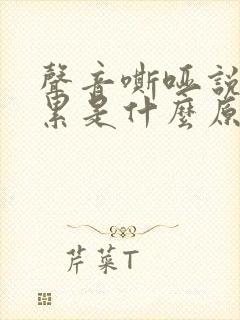 聲音嘶啞說
累是什麼原
芹菜T